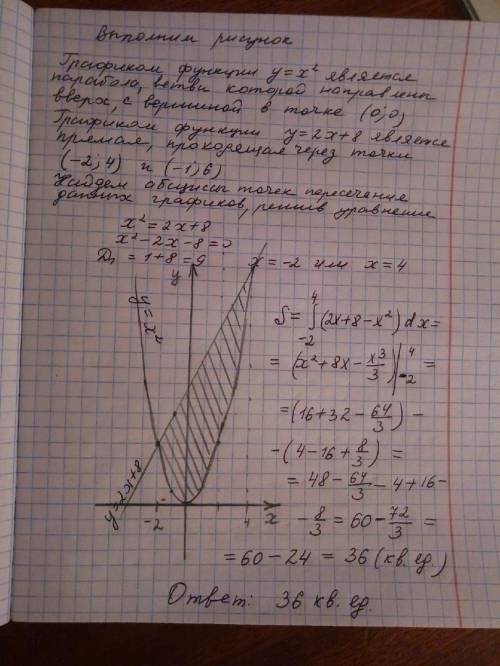 Выполним рисунок
Графиком функции y = x² является
парабола, ветви которой направлены
вверх, с вершиной в точке (0;0)
Графиком функции y = 2x+8 является
прямая, проходящая через точки
(-2; 4) и (-1; 6)
Найдем абсциссы точек пересечения
данных графиков, решив уравнение
x² = 2x+8
x² - 2x - 8 = 0
D₁ = 1+8 = 9
x = -2 или x = 4
y
y = x²
y = 2x+8
-2
4
x
S = ∫₋₂⁴ (2x + 8 - x²) dx =
= (x² + 8x - x³/3) |₋₂⁴ =
= (16 + 32 - 64/3) -
- (4 - 16 + 8/3) =
= 48 - 64/3 - 4 + 16 -
- 8/3 = 60 - 72/3 =
= 60 - 24 = 36 (кв. ед.)
Ответ: 36 кв. ед.